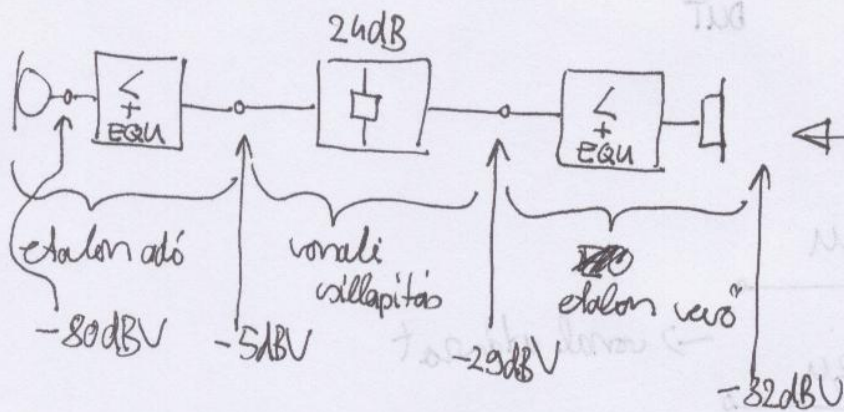 24dB
<
+
EQU
<
+
EQU
etalon adó
vonali
csillapítás
etalon vevő
-80dBV
-5dBV
-29dBV
-32dBV